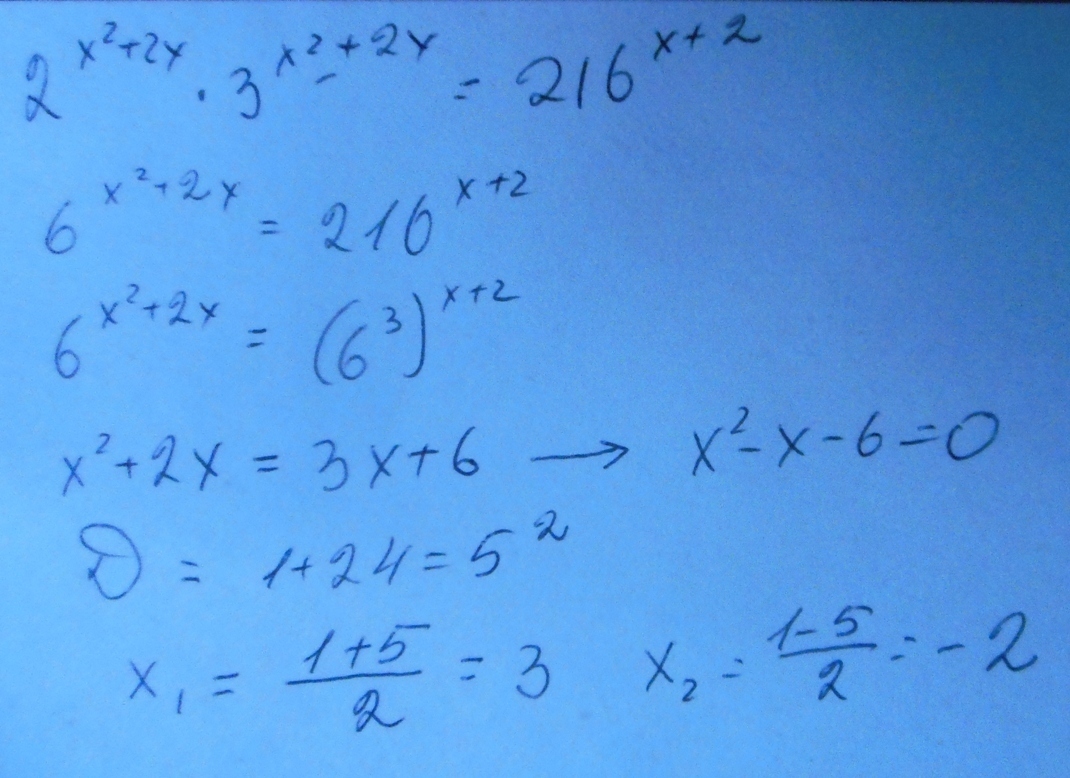 2^(x²+2x) · 3^(x²+2x) = 216^(x+2)
6^(x²+2x) = 216^(x+2)
6^(x²+2x) = (6³)^(x+2)
x²+2x = 3x+6 → x²-x-6=0
D = 1+24=5²
x₁ = (1+5)/2 = 3 x₂ = (1-5)/2 = -2